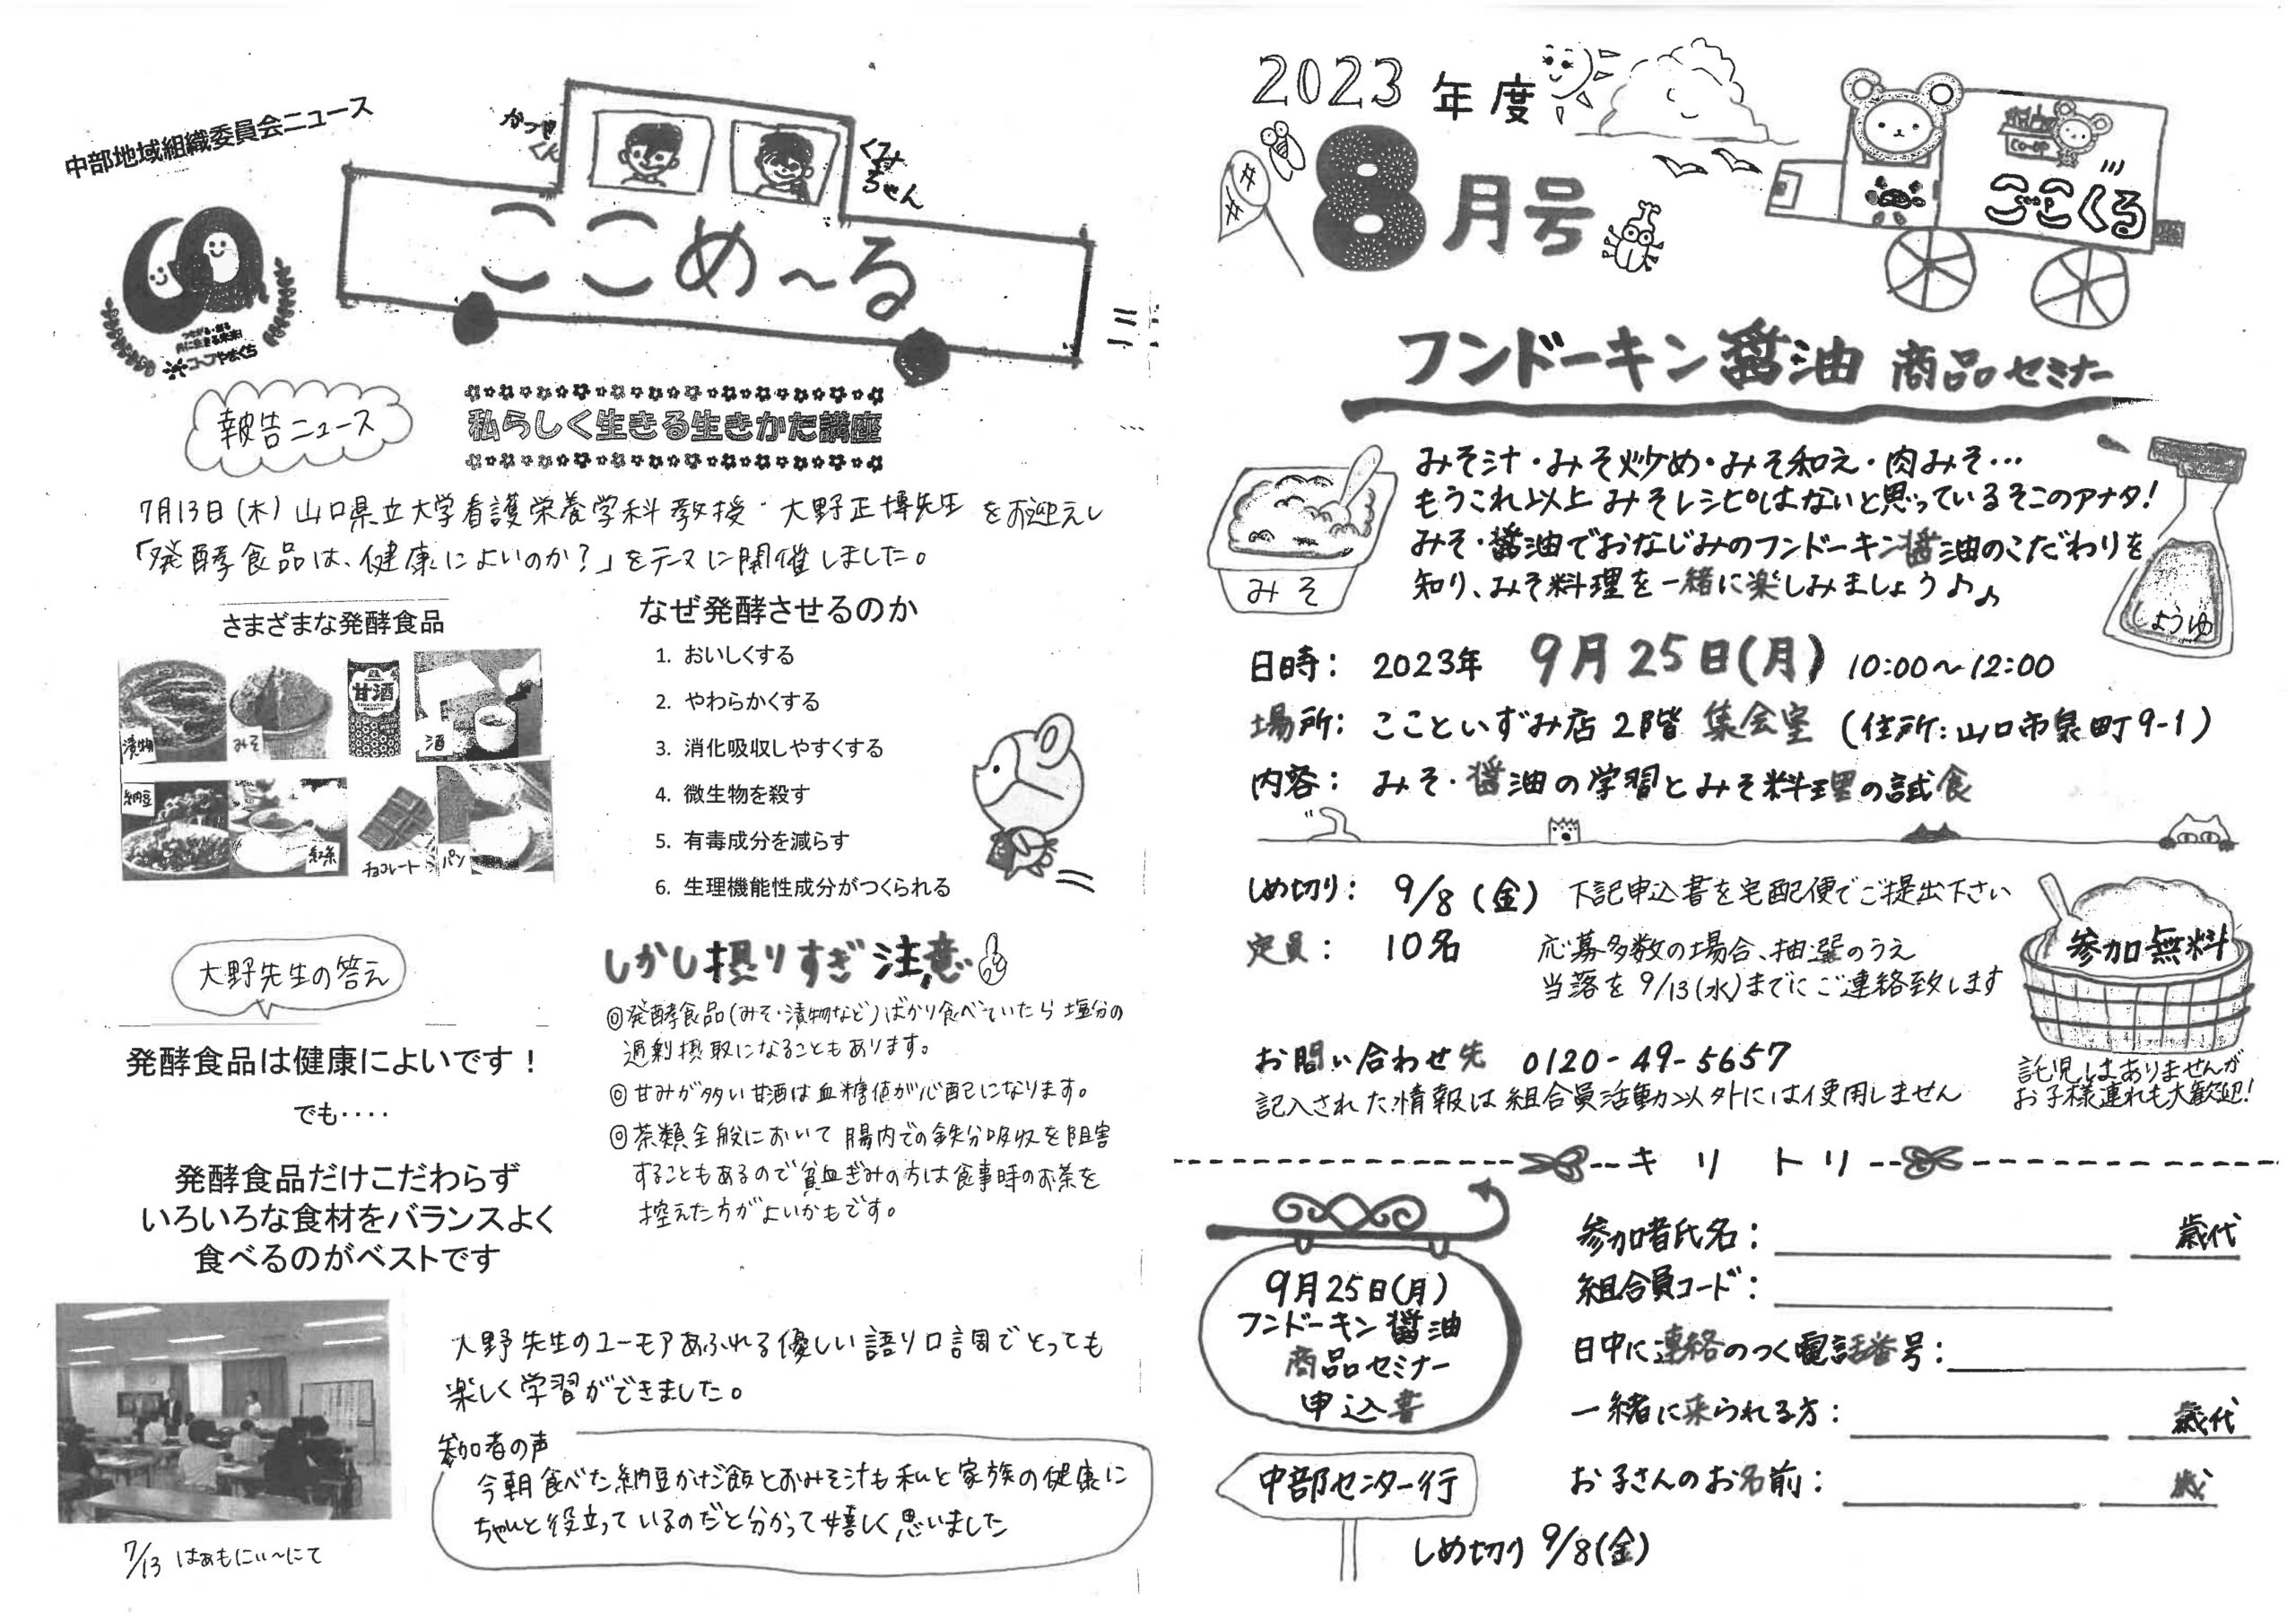 中部地域組織委員会ニュース
かつやくん
くみちゃん
ここめ〜る
つながる・創る
共に生きる未来!
コープやまぐち
報告ニュース
私らしく生きる生きかた講座
7月13日(木)山口県立大学看護栄養学科教授・大野正博先生をお迎えし
「発酵食品は、健康によいのか?」をテーマに開催しました。
さまざまな発酵食品
漬物
みそ
甘酒
酒
納豆
紅茶
チョコレート
パン
なぜ発酵させるのか
1. おいしくする
2. やわらかくする
3. 消化吸収しやすくする
4. 微生物を殺す
5. 有毒成分を減らす
6. 生理機能性成分がつくられる
大野先生の答え
発酵食品は健康によいです!
でも････
発酵食品だけこだわらず
いろいろな食材をバランスよく
食べるのがベストです
しかし摂りすぎ注意
◎発酵食品(みそ・漬物など)ばかり食べていたら塩分の
過剰摂取になることもあります。
◎甘みが多い甘酒は血糖値が心配になります。
◎茶類全般において腸内での鉄分吸収を阻害
することもあるので貧血ぎみの方は食事時のお茶を
控えた方がよいかもです。
7/13 はぁもにぃ〜にて
大野先生のユーモアあふれる優しい語り口調でとっても
楽しく学習ができました。
参加者の声
今朝食べた納豆かけご飯とおみそ汁も私と家族の健康に
ちゃんと役立っているのだと分かって嬉しく思いました
2023年度
8月号
CO・OP
ここくる
フンドーキン醤油 商品セミナー
みそ汁・みそ炒め・みそ和え・肉みそ…
もうこれ以上みそレシピはないと思っているそこのアナタ!
みそ・醤油でおなじみのフンドーキン醤油のこだわりを
知り、みそ料理を一緒に楽しみましょう♪♪
みそ
しょうゆ
日時: 2023年 9月25日(月) 10:00〜12:00
場所: ここといずみ店2階 集会室 (住所:山口市泉町9-1)
内容: みそ・醤油の学習とみそ料理の試食
しめ切り: 9/8(金) 下記申込書を宅配便でご提出下さい
定員: 10名 応募多数の場合、抽選のうえ
当落を9/13(水)までにご連絡致します
参加無料
お問い合わせ先 0120-49-5657
記入された情報は組合員活動以外には使用しません
託児はありませんが
お子様連れも大歓迎!
キリトリ
9月25日(月)
フンドーキン醤油
商品セミナー
申込書
中部センター行
しめ切り 9/8(金)
参加者氏名: 歳代
組合員コード:
日中に連絡のつく電話番号:
一緒に来られる方: 歳代
お子さんのお名前: 歳